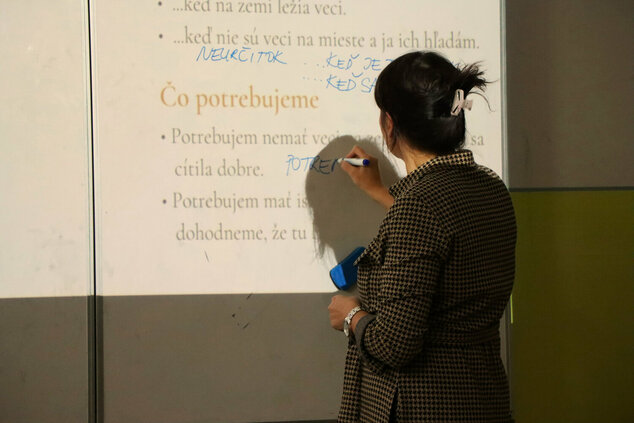 • ...keď na zemi ležia veci.
• ...keď nie sú veci na mieste a ja ich hľadám.
NEURČITOK ...KEĎ JE
...KEĎ SA
Čo potrebujeme
• Potrebujem nemať veci sa
cítila dobre. POTRE
• Potrebujem mať
dohodneme, že tu